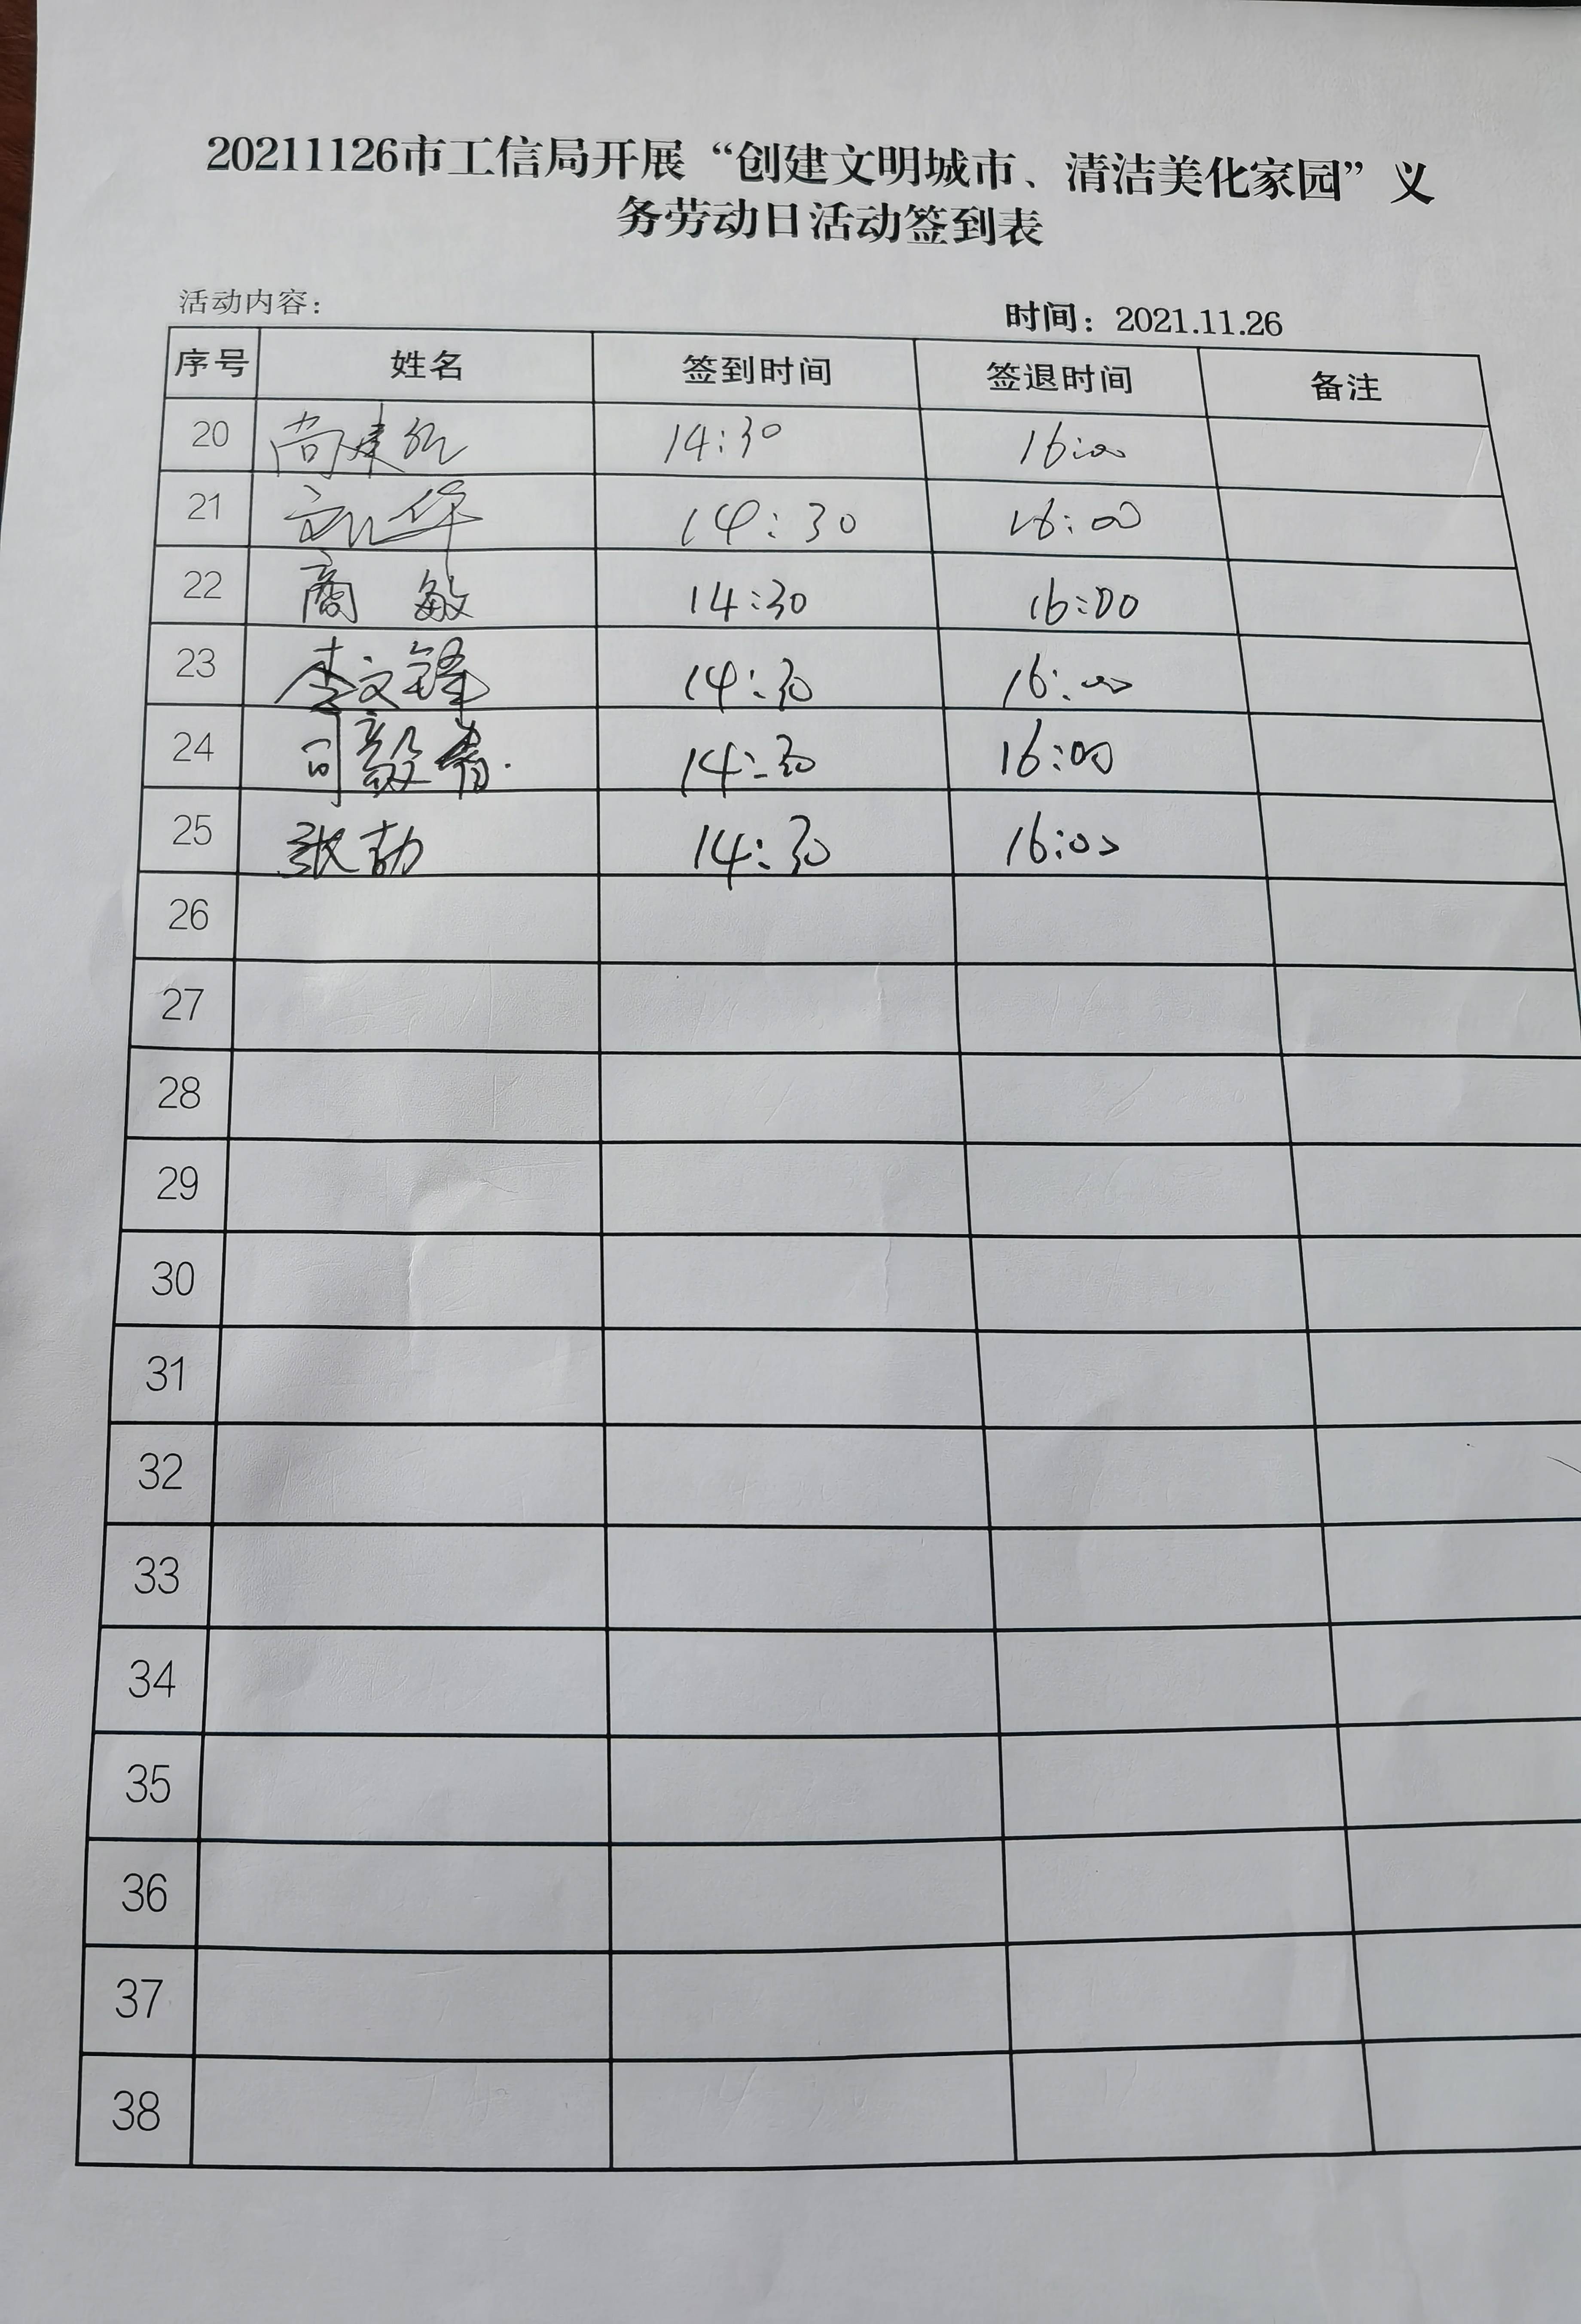 20211126市工信局开展“创建文明城市、清洁美化家园”义
务劳动日活动签到表
活动内容：
时间：2021.11.26
序号 姓名 签到时间 签退时间 备注
20 尚建 14:30 16:00
21 华 14:30 16:00
22 商敏 14:30 16:00
23 李文锋 14:30 16:00
24 司毅青 14:30 16:00
25 张劼 14:30 16:00
26
27
28
29
30
31
32
33
34
35
36
37
38